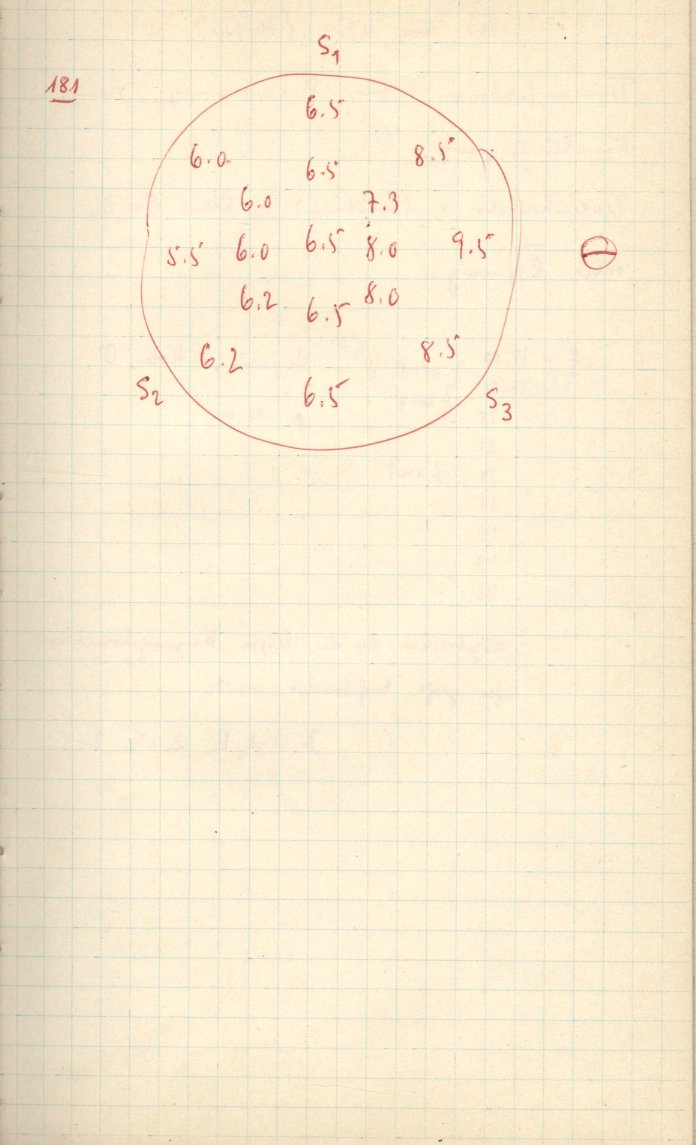 S1
181
6.5
6.0 6.5 8.5
6.0 7.3
5.5 6.0 6.5 8.0 9.5
6.2 6.5 8.0
6.2 8.5
S2 6.5 S3